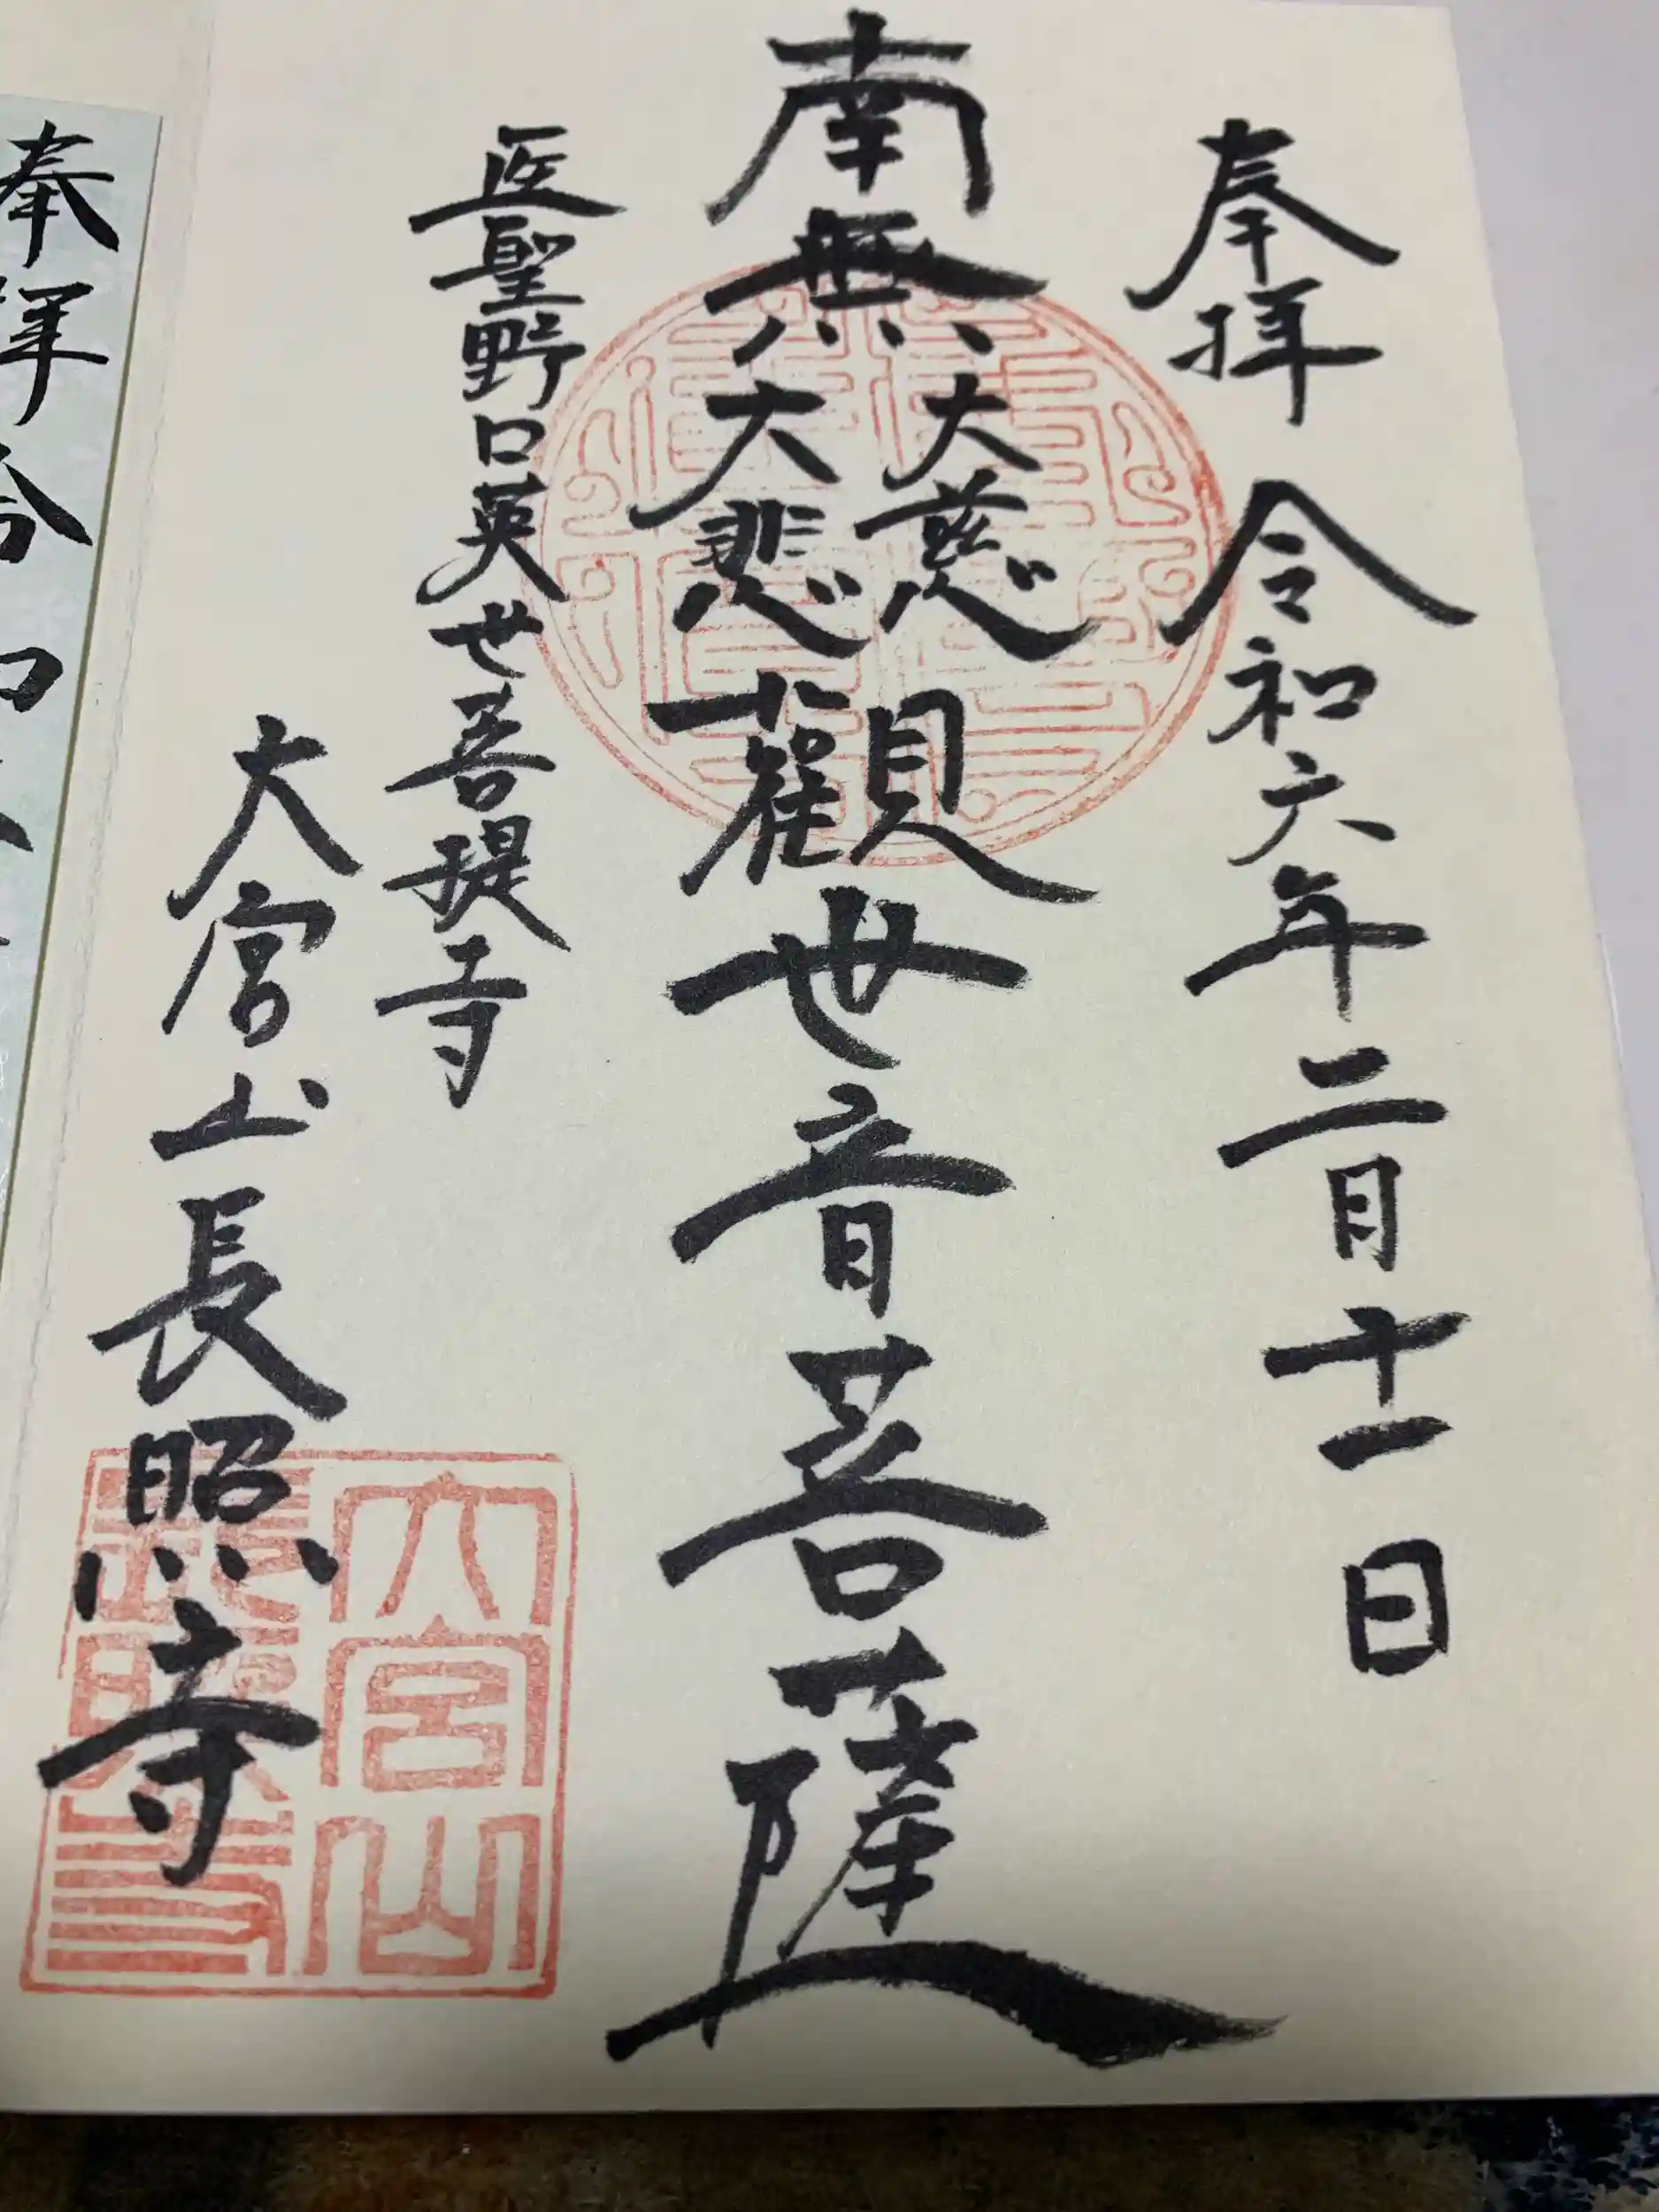 奉拝 令和六年二月十一日
南無大慈大悲觀世音菩薩
医聖野口英世菩提寺
大宮山長照寺
大宮山
長照寺
奉拝 令和